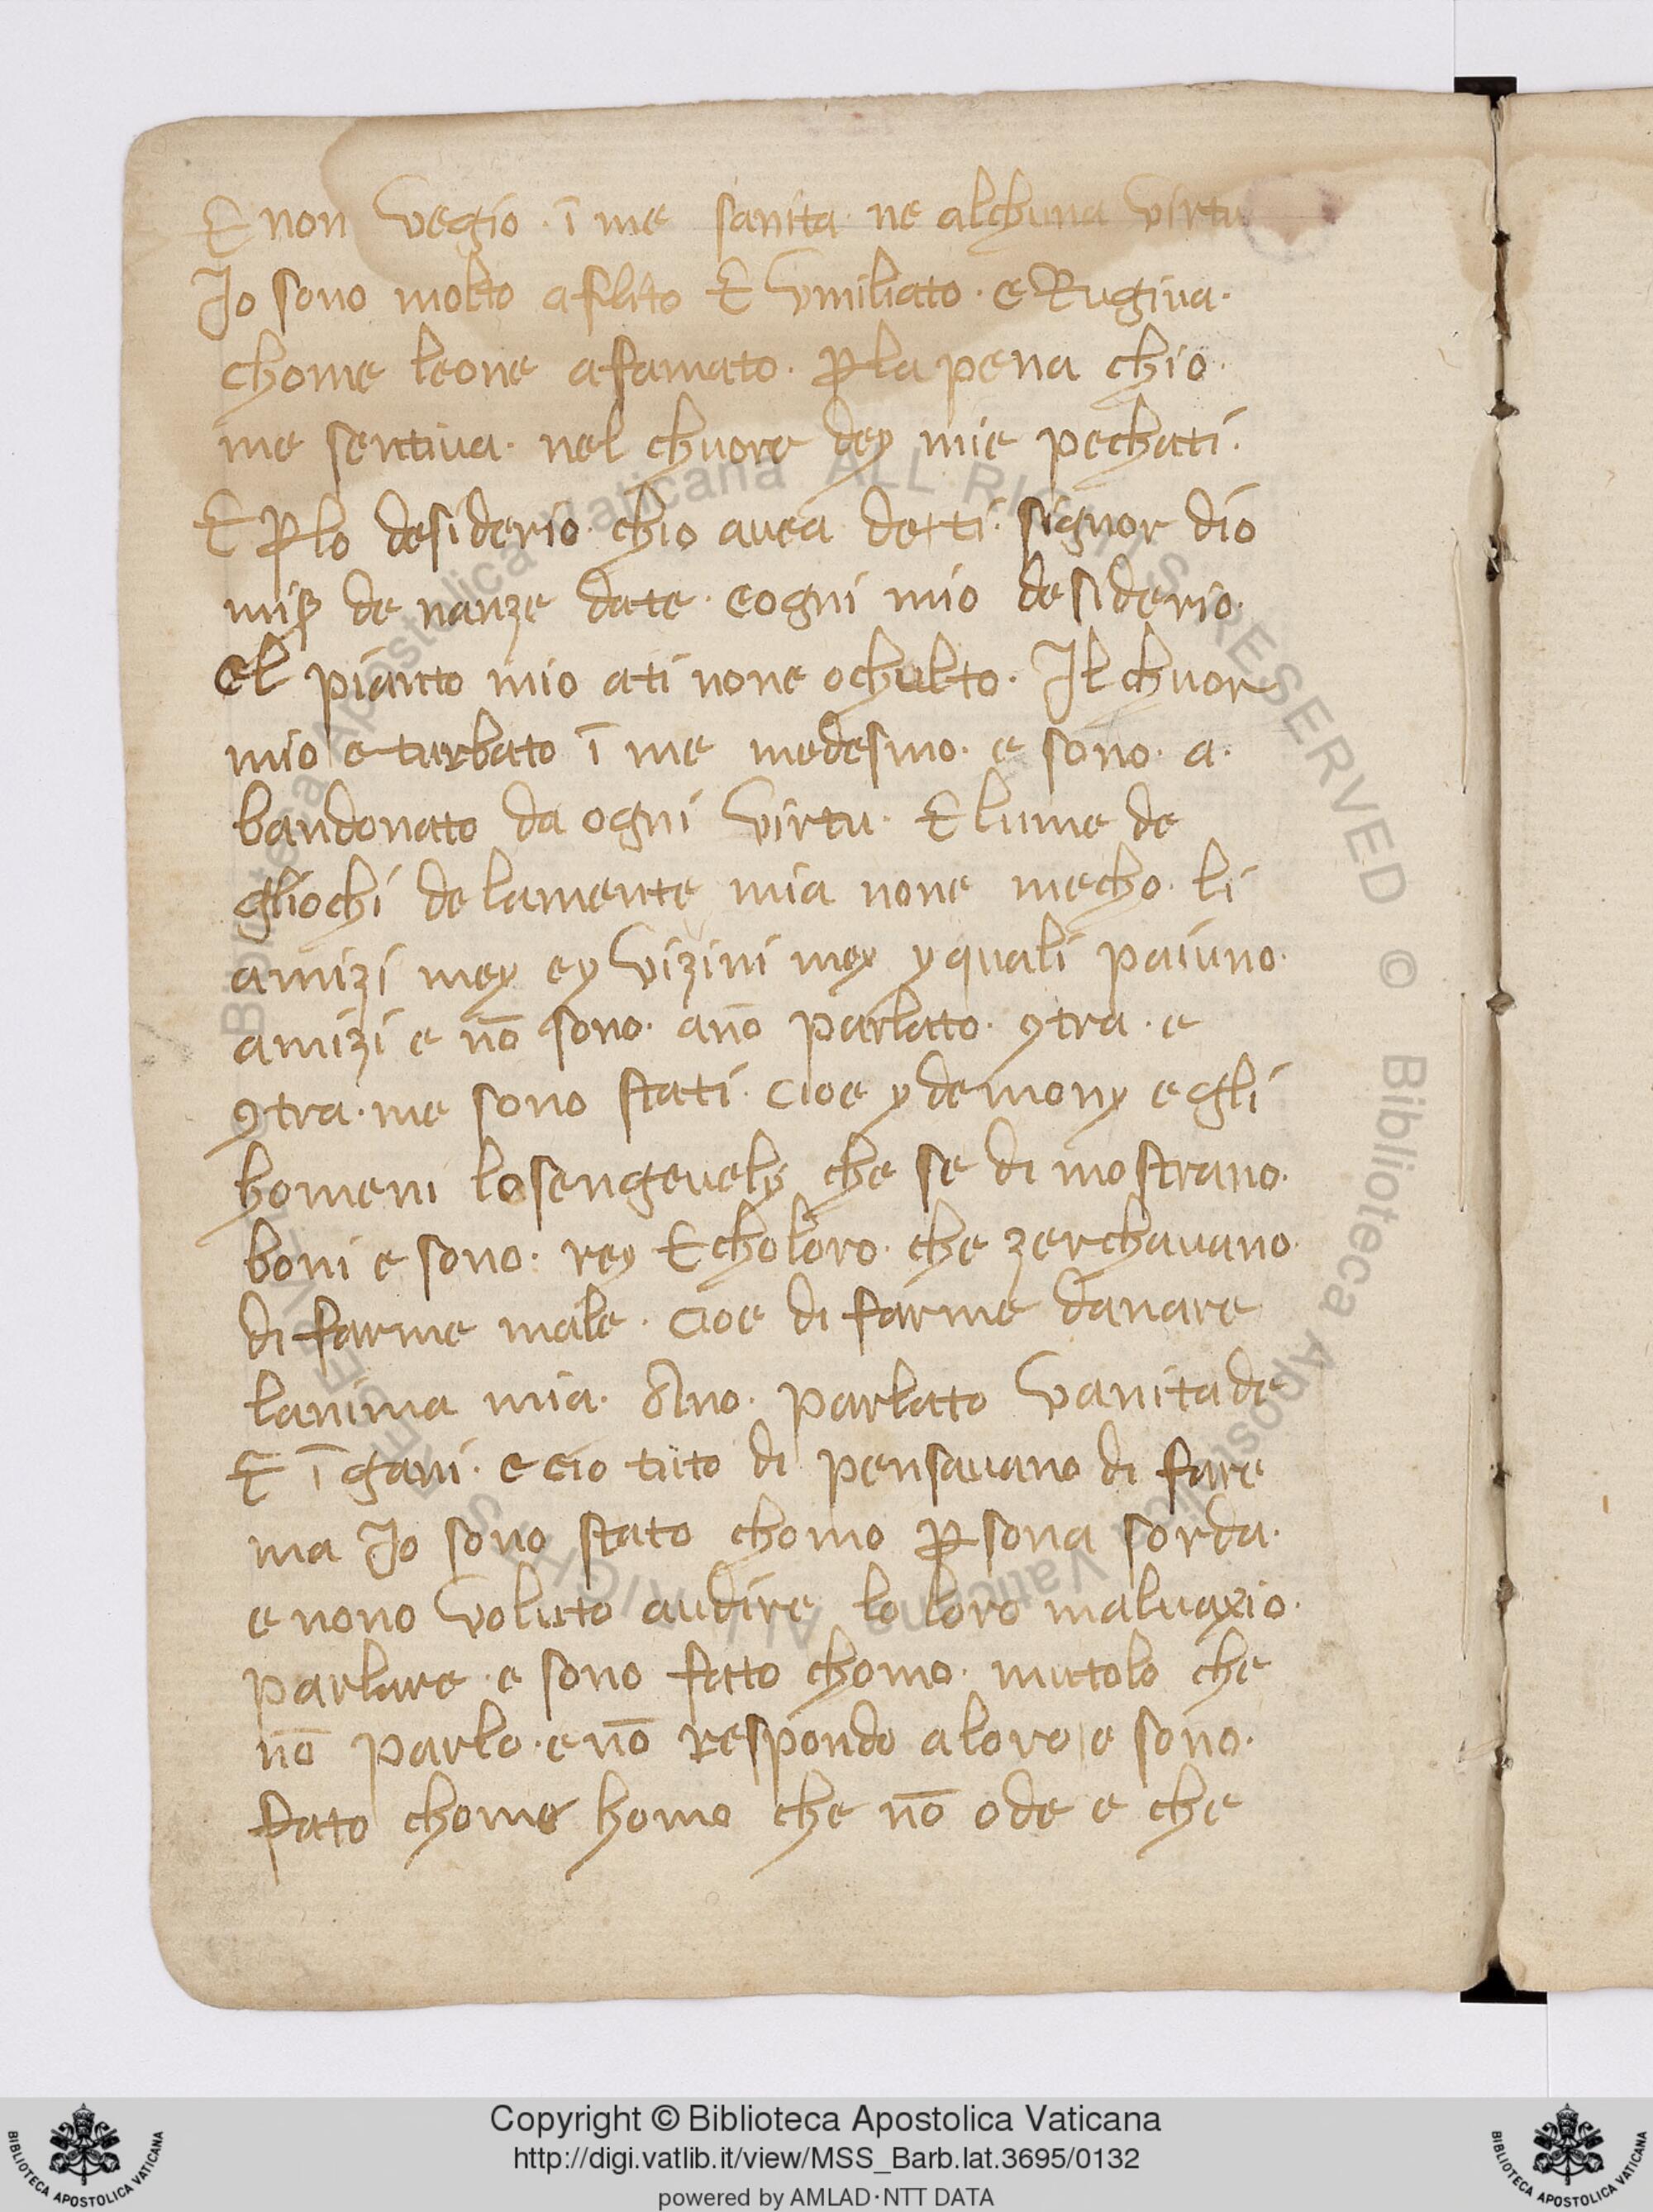 E non vegio · ī me sanita · ne alchuna virtu
Jo sono molto aflito E vmiliato · e Rugiua ·
chome leone afamato · ꝑ la pena chio ·
me sentiua · nel chuore dey mie pechati ·
E ꝑ lo desiderio · chio auea de ti · signor dio
miꝑ de nanze date · eogni mio desiderio ·
el pianto mio ati none ochulto · Il chuor
mio e turbato ī me medesmo · e sono · a ·
bandonato da ogni virtu · E lume de
gliochi de lamente mia none mecho · li
amizi mey ey vizini mey y quali paiuno ·
amizi e nō sono · anō parlato · ꝯtra · e
ꝯtra · me sono stati · cioe y demony e gli
homeni losengeuely che se di mostrano ·
boni e sono · rey E choloro · che zerchauano ·
di farme male · cioe di farme danare
lanima mia · Ano · parlato vanitade
E ī gani · e cio tuto di pensauano di fare
ma Jo sono stato chomo ꝑsona sorda ·
e nono voluto audire lo loro maluaxio ·
parlare · e sono fatto chomo · mutolo che
nō parlo · e nō respondo a loro e sono ·
fato chome homo che nō ode e che
Copyright © Biblioteca Apostolica Vaticana
http://digi.vatlib.it/view/MSS_Barb.lat.3695/0132
powered by AMLAD·NTT DATA
BIBLIOTECA APOSTOLICA VATICANA
BIBLIOTECA APOSTOLICA VATICANA
Biblioteca Apostolica Vaticana ALL RIGHTS RESERVED © Biblioteca Apostolica Vaticana ALL RIGHTS RESERVED